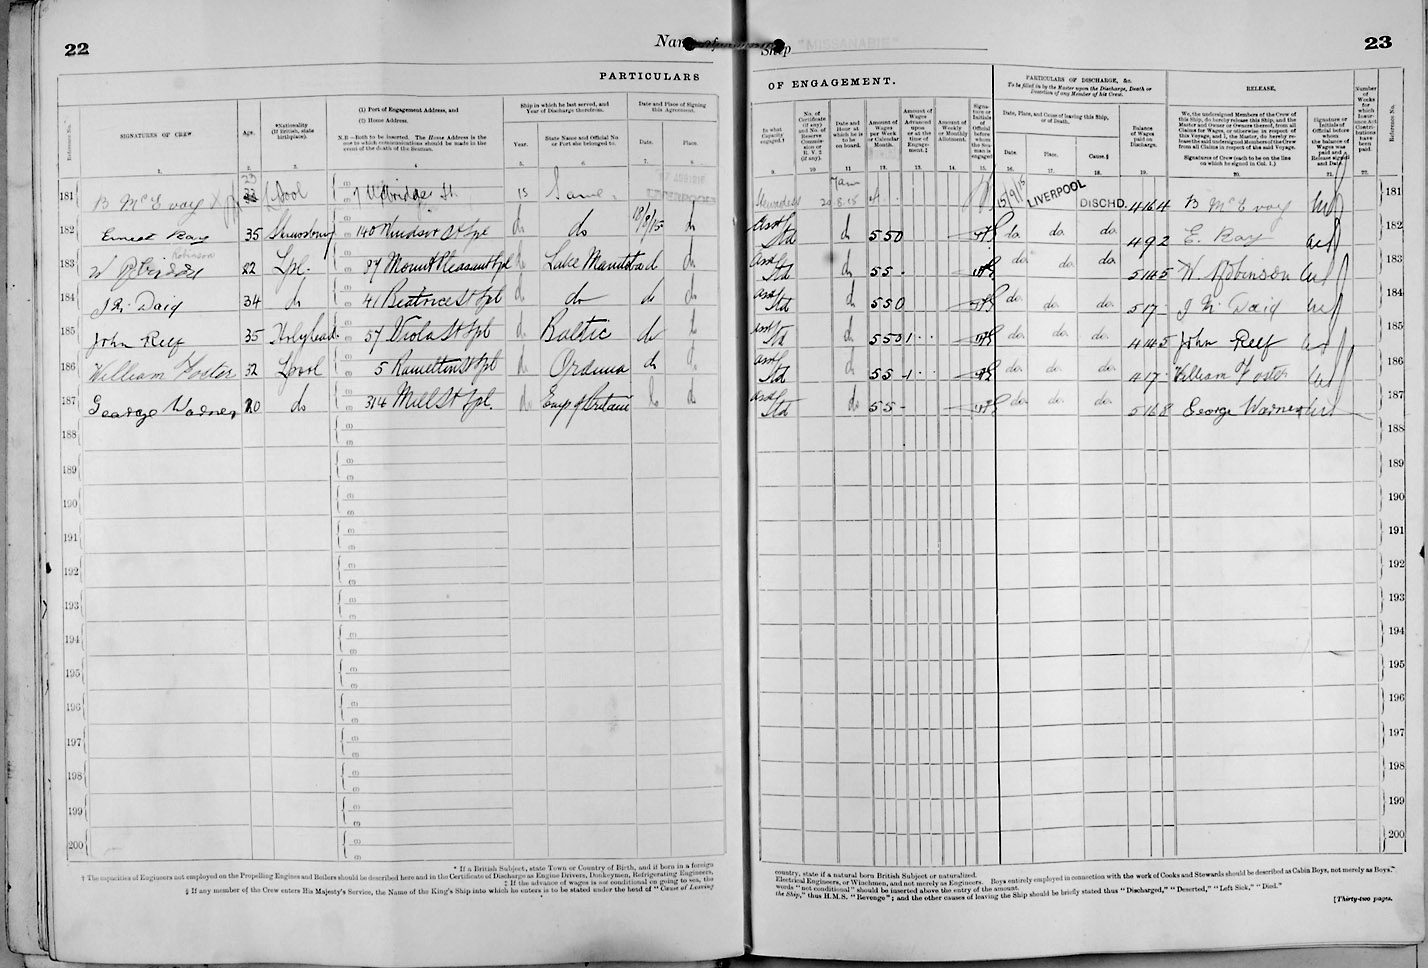 22
Name of
Ship "MISSANABIE"
23
PARTICULARS
OF ENGAGEMENT.
PARTICULARS OF DISCHARGE, &c.
To be filled in by the Master upon the Discharge, Death or
Desertion of any Member of his Crew.
RELEASE.
Reference No.
SIGNATURES OF CREW
Age.
*Nationality
(If British, state
birthplace).
(1) Port of Engagement Address, and
(2) Home Address.
N.B.—Both to be inserted. The Home Address is the
one to which communications should be made in the
event of the death of the Seaman.
Ship in which he last served, and
Year of Discharge therefrom.
Year.
State Name and Official No
or Port she belonged to.
Date and Place of Signing
this Agreement.
Date.
Place.
In what
Capacity
engaged.†
No. of
Certificate
(if any)
and No. of
Reserve
Commis-
sion or
R. V. 2
(if any).
Date and
Hour at
which he is
to be
on board.
Amount of
Wages per
Week or
Calendar
Month.
Amount of
Wages
Advanced
upon
or at the
time of
Engage-
ment.‡
Amount of
Weekly
or Monthly
Allotment.
Signa
Initials
of
Official
before
whom
the Sea-
man is
engaged
Date, Place, and Cause of leaving this Ship,
or of Death.
Date.
Place.
Cause.§
Balance
of
Wages
paid on
Discharge.
We, the undersigned Members of the Crew of
this Ship, do hereby release this Ship, and the
Master and Owner or Owners thereof, from all
Claims for Wages, or otherwise in respect of
this Voyage, and I, the Master, do hereby re-
lease the said undersigned Members of the Crew
from all Claims in respect of the said Voyage.
Signatures of Crew (each to be on the line
on which he signed in Col. 1.)
Signature or
Initials of
Official before
whom
the balance of
Wages was
paid and
Release signed
and Date.
Number
of
Weeks
for
which
Insur-
ance Act
Contri-
butions
have
been
paid.
Reference No.
1. 2. 3. 4. 5. 6. 7. 8. 9. 10 11 12. 13. 14. 15. 16. 17. 18. 19. 20. 21. 22.
181 B McEvoy 33 23 Lpool 7 Uxbridge St. 15 Same Stewardess 7am 20.8.15 4 15/9/15 LIVERPOOL DISCHD. 4 16 4 B McEvoy 181
182 Ernest Ray 35 Shrewsbury 140 Windsor St Lpl do do 18/8/15 do Asst Std do 5 5 0 do. do. do. 4 9 2 E. Ray 182
183 W Robinson Robinson 22 Lpl. 87 Mount Pleasant Lpl do Lake Manitoba do do Asst Std do 5 5 - do. do. do. 5 14 5 W. Robinson 183
184 41 Beatrice St Lpl 34 do do do do do Asst Std do 5 5 0 do. do. do. 5 17 - 184
185 John Relf 35 Holyhead 57 Viola St Lpl do Baltic do do Asst Std do 5 5 0 1 - - do. do. do. 4 14 5 John Relf 185
186 William Foster 32 Lpool 5 Ramilton St Lpl do Orduna do do Asst Std do 5 5 - 1 - - do. do. do. 4 17 - William Foster 186
187 George Warner 20 do 314 Mill St Lpl. do Emp of Britain do do Asst Std do 5 5 - do. do. do. 5 16 8 George Warner 187
188 188
189 189
190 190
191 191
192 192
193 193
194 194
195 195
196 196
197 197
198 198
199 199
200 200
* If a British Subject, state Town or Country of Birth, and if born in a foreign
country, state if a natural born British Subject or naturalized.
† The capacities of Engineers not employed on the Propelling Engines and Boilers should be described here and in the Certificate of Discharge as Engine Drivers, Donkeymen, Refrigerating Engineers,
Electrical Engineers, or Winchmen, and not merely as Engineers. Boys entirely employed in connection with the work of Cooks and Stewards should be described as Cabin Boys, not merely as Boys."
‡ If the advance of wages is not conditional on going to sea, the
words "not conditional" should be inserted above the entry of the amount.
§ If any member of the Crew enters His Majesty's Service, the Name of the King's Ship into which he enters is to be stated under the head of "Cause of Leaving
the Ship," thus H.M.S. "Revenge"; and the other causes of leaving the Ship should be briefly stated thus "Discharged," "Deserted," "Left Sick," "Died."
[Thirty-two pages.